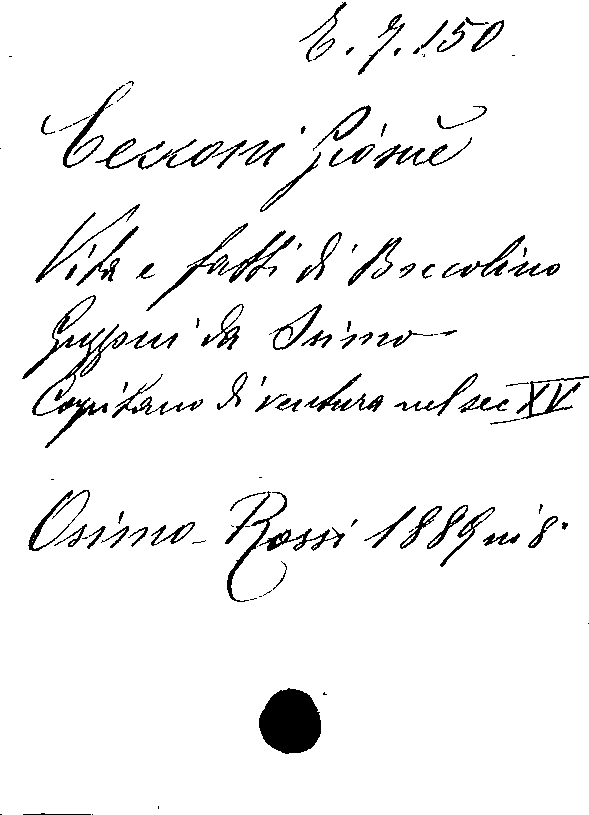 E. 7. 150
Cecconi Giosuè
Vita e fatti di Boccolino
Guzzoni da Osimo
Capitano di ventura nel sec XV
Osimo - Rossi 1889 in 8°